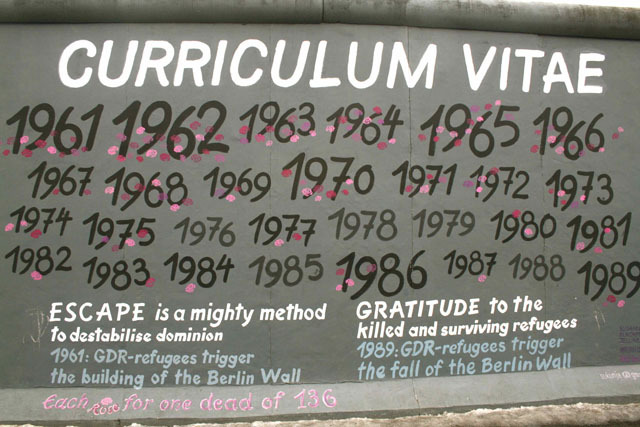 CURRICULUM VITAE
1961 1962 1963 1964 1965 1966
1967 1968 1969 1970 1971 1972 1973
1974 1975 1976 1977 1978 1979 1980 1981
1982 1983 1984 1985 1986 1987 1988 1989
ESCAPE is a mighty method
to destabilise dominion
1961: GDR-refugees trigger
the building of the Berlin Wall
GRATITUDE to the
killed and surviving refugees
1989: GDR-refugees trigger
the fall of the Berlin Wall
Each for one dead of 136